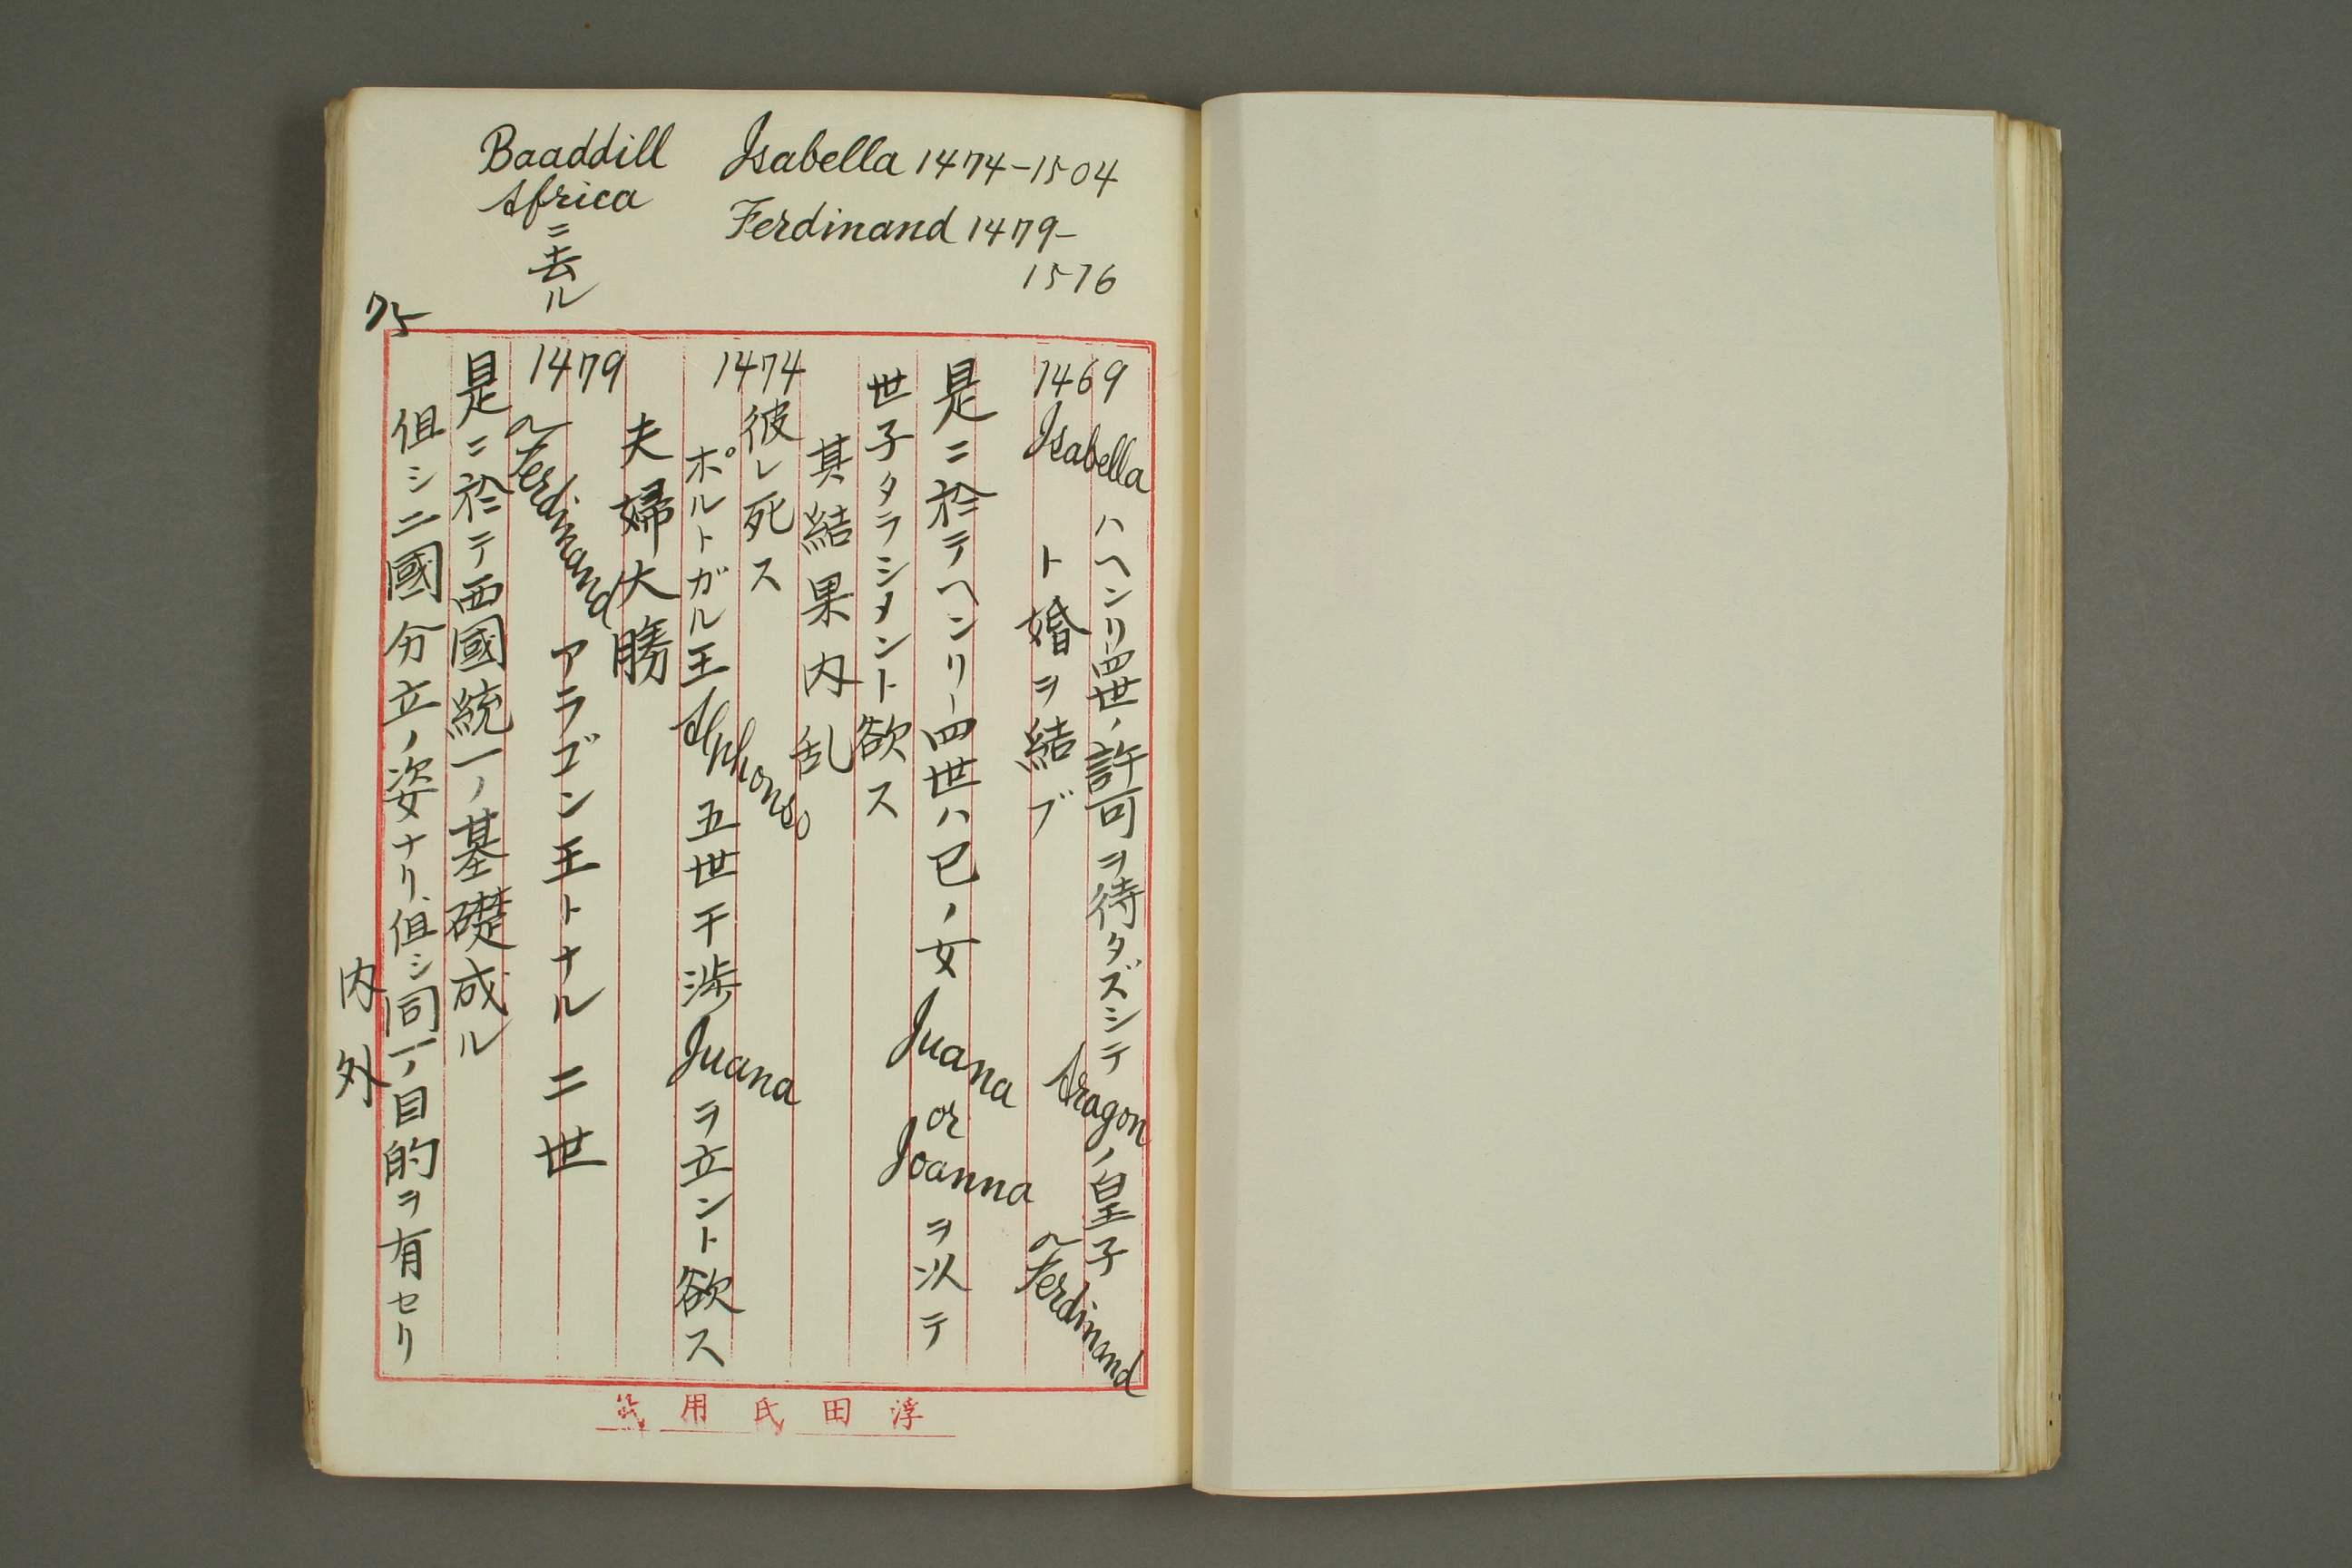 Isabella 1474-1504
Ferdinand 1479-
1516
Baaddill
Africa
ニ去ル
75
1469
Isabella ハヘンリ四世ノ許可ヲ待タズシテ Aragon ノ皇子 Ferdinand
ト婚ヲ結ブ
是ニ於テヘンリー四世ハ已ノ女 Juana or Joanna ヲ以テ
世子タラシメント欲ス
其結果内乱
1474
彼レ死ス
ポルトガル王 Alphonso 五世干渉 Juana ヲ立ント欲ス
夫婦大勝
1479
Ferdinand アラゴン王トナル 二世
是ニ於テ西國統一ノ基礎成ル
但シ二國分立ノ姿ナリ、但シ同一ノ目的ヲ有セリ
内外
淳田氏用